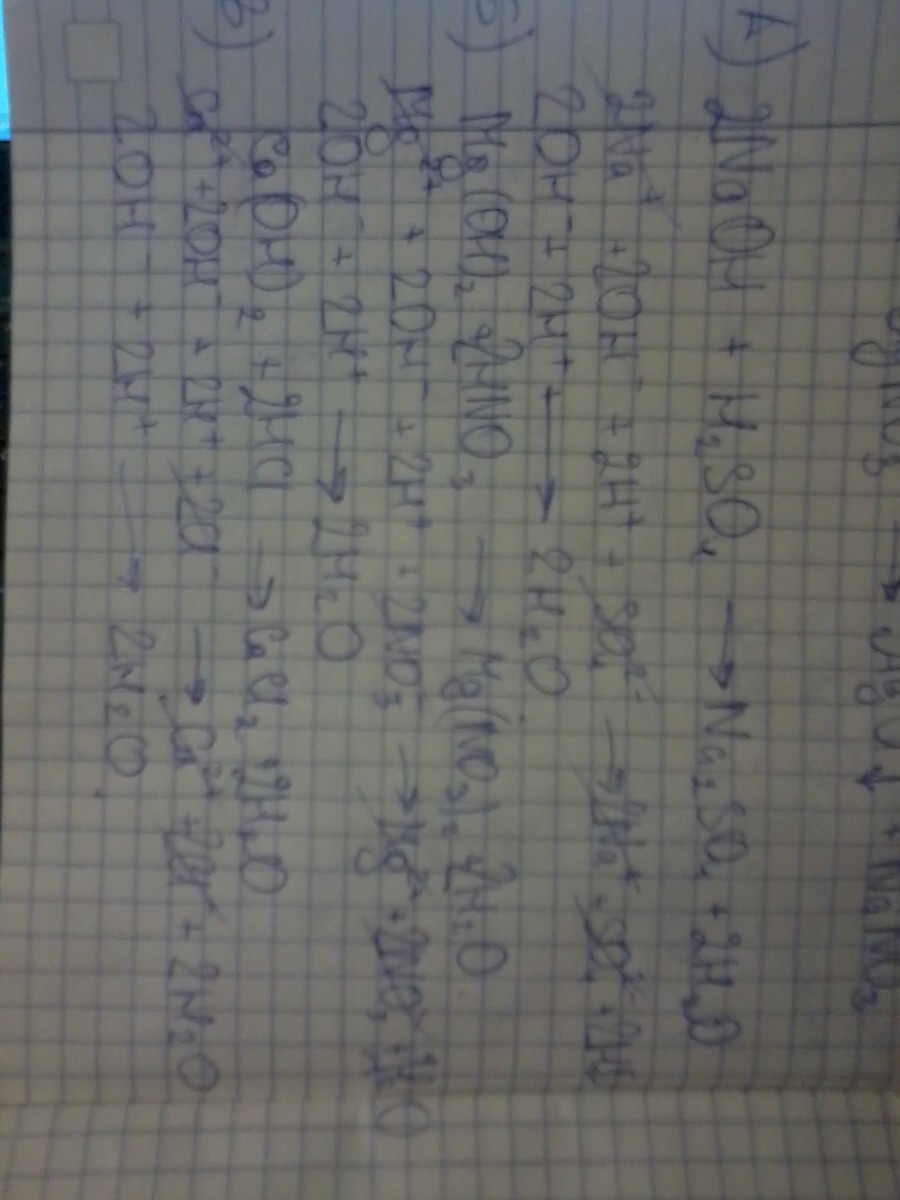 AgNO₃ → AgCl↓ + NaNO₃
А) 2NaOH + H₂SO₄ → Na₂SO₄ + 2H₂O
2Na⁺ + 2OH⁻ + 2H⁺ + SO₄²⁻ → 2Na⁺ + SO₄²⁻ + 2H
2OH⁻ + 2H⁺ → 2H₂O
Б) Mg(OH)₂ + 2HNO₃ → Mg(NO₃)₂ + 2H₂O
Mg²⁺ + 2OH⁻ + 2H⁺ + 2NO₃⁻ → Mg²⁺ + 2NO₃⁻ + H₂O
2OH⁻ + 2H⁺ → 2H₂O
В) Ca(OH)₂ + 2HCl → CaCl₂ + 2H₂O
Ca²⁺ + 2OH⁻ + 2H⁺ + 2Cl⁻ → Ca²⁺ + 2Cl⁻ + 2H₂O
2OH⁻ + 2H⁺ → 2H₂O